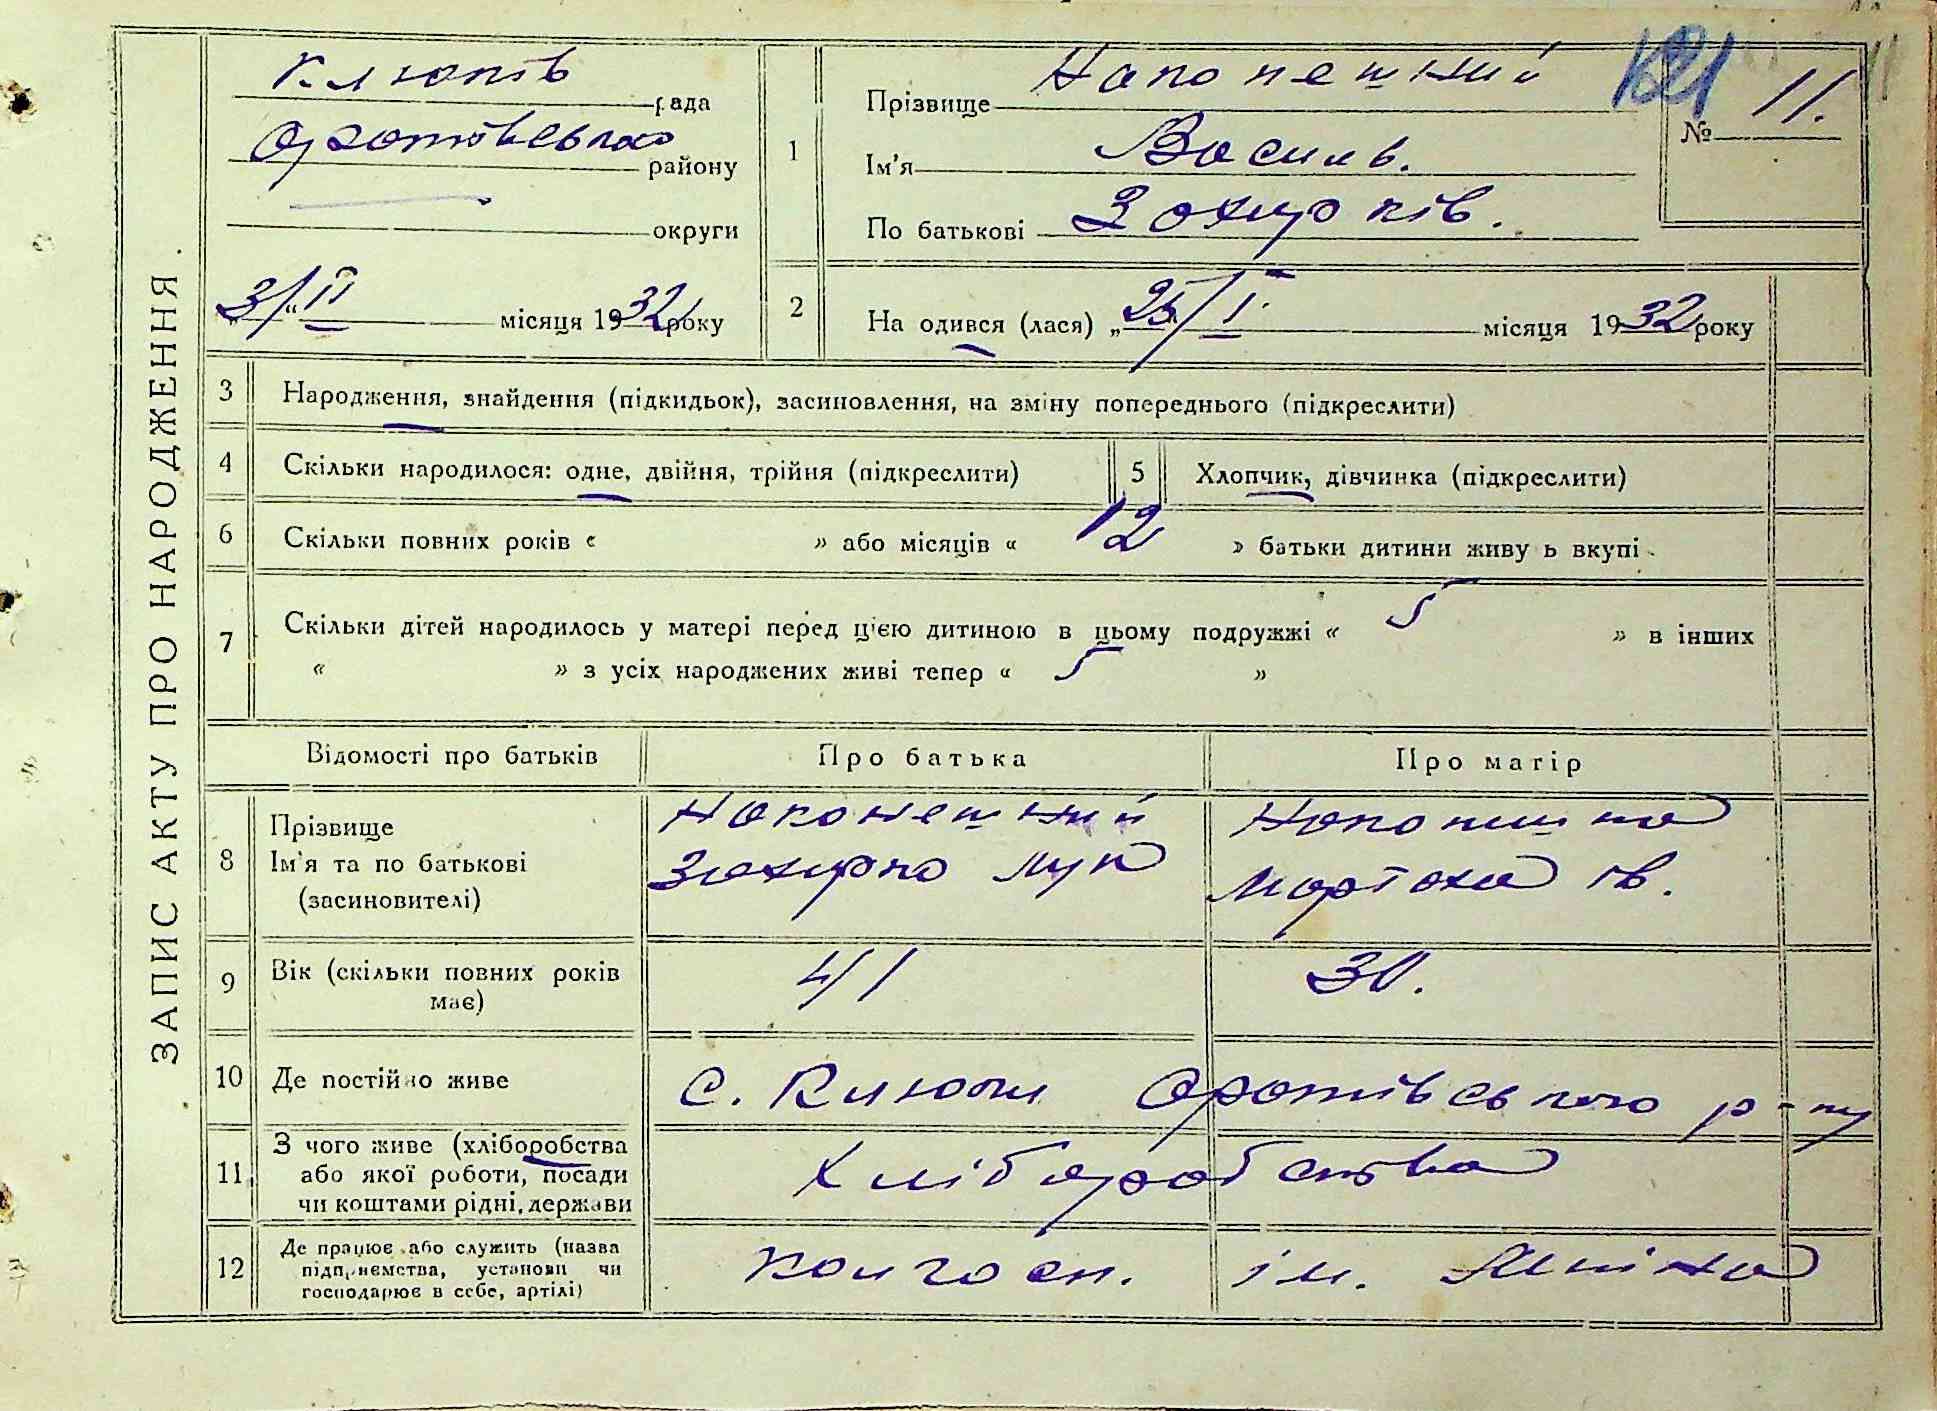 ЗАПИС АКТУ ПРО НАРОДЖЕННЯ.
Клюків рада
Оратівського району
округи
3/II місяця 1932 року
1
Прізвище Наконешний
Ім'я Василь.
По батькові Захарків.
121
№ 11.
2
На одився (лася) „25/I місяця 1932 року
3 Народження, знайдення (підкидьок), засиновлення, на зміну попереднього (підкреслити)
4 Скільки народилося: одне, двійня, трійня (підкреслити) 5 Хлопчик, дівчинка (підкреслити)
6 Скільки повних років « » або місяців « 12 » батьки дитини живу ь вкупі.
7 Скільки дітей народилось у матері перед цією дитиною в цьому подружжі « 5 » в інших
« » з усіх народжених живі тепер « 5 »
Відомості про батьків Про батька Про матір
8 Прізвище Наконешний Наконешна
Ім'я та по батькові Захарко Лук Мартоха Ів.
(засиновителі)
9 Вік (скільки повних років має) 41 30.
10 Де постійно живе с. Клюки Оратівського р-ну
11 З чого живе (хліборобства
або якої роботи, посади Хліборобства
чи коштами рідні, держави
12 Де працює або служить (назва
підприємства, установи чи колгосп. ім. Леніна
господарює в себе, артілі)